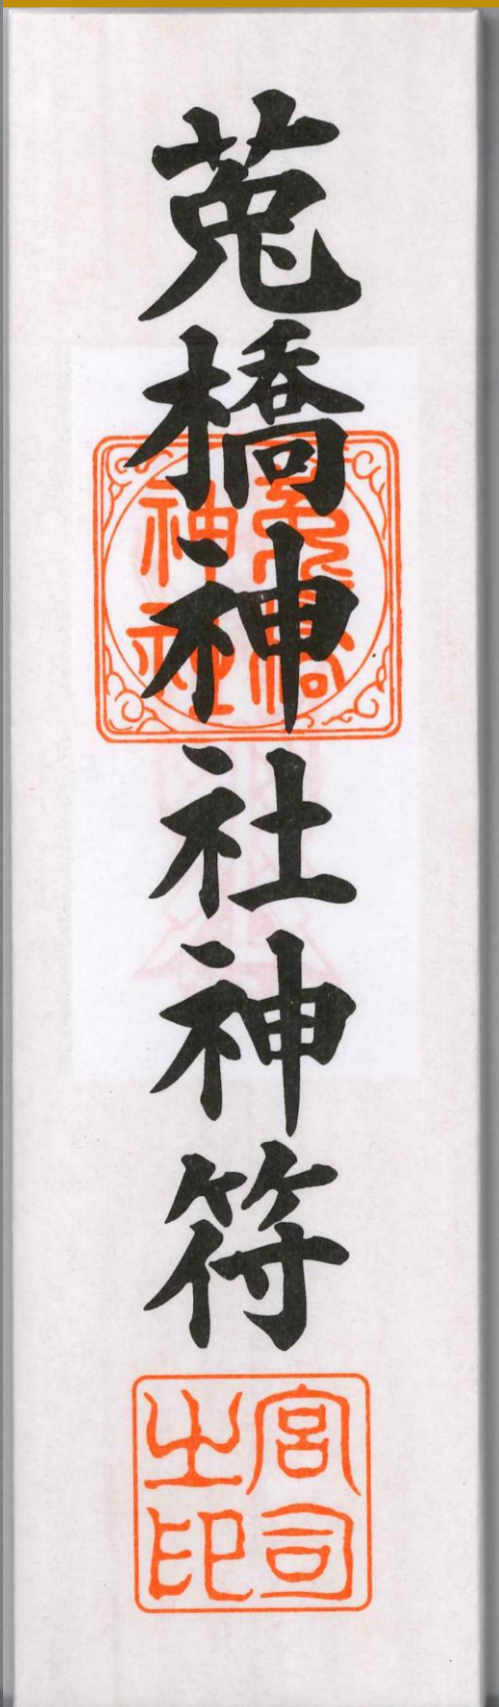 莵橋神社神符
莵橋神社
宮司之印